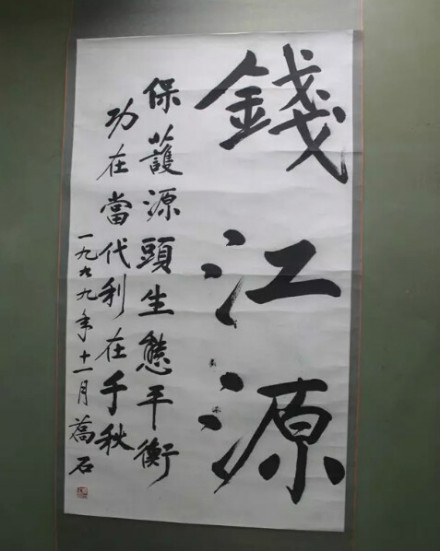 錢江源
保護源頭生態平衡
功在當代利在千秋
一九九九年十一月喬石